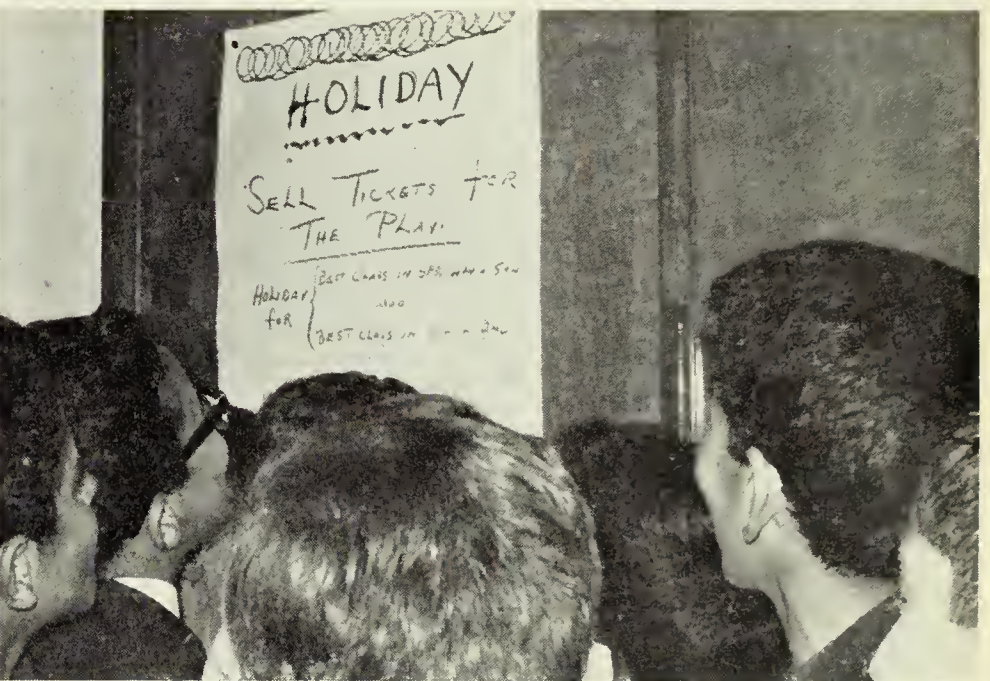 HOLIDAY
SELL TICKETS for
THE PLAY.
HOLIDAY
for
BEST CLASS IN
AND
BEST CLASS IN